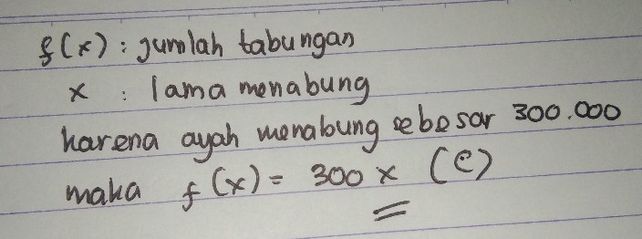 f(x) : jumlah tabungan
x : lama menabung
karena ayah menabung sebesar 300.000
maka f(x) = 300 x (c)